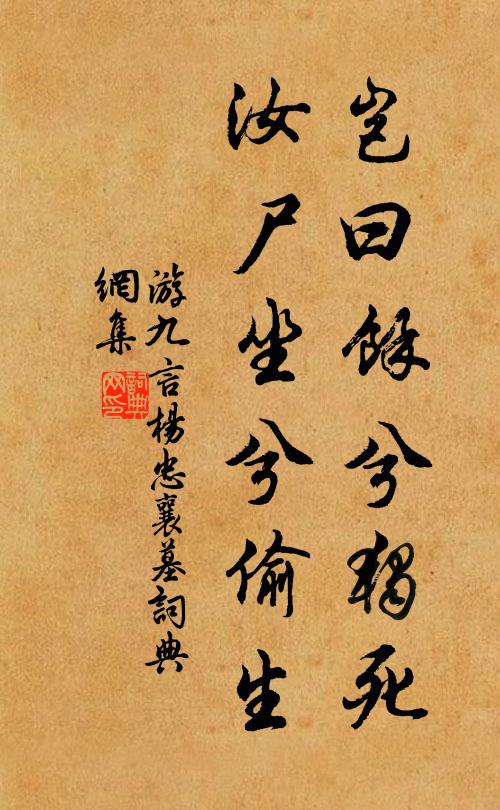 豈曰餘兮獨死
汝尸坐兮偷生
游九言楊忠襄墓詞典
網集
詞典
网印